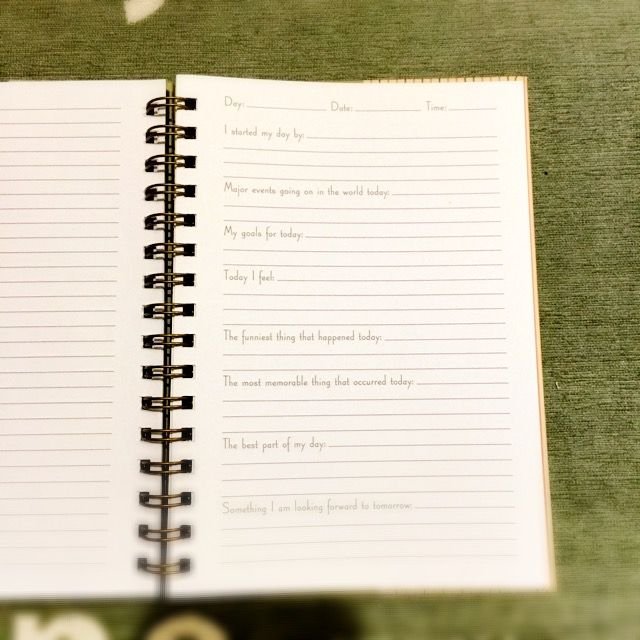 Day: Date: Time:
I started my day by:
Major events going on in the world today:
My goals for today:
Today I feel:
The funniest thing that happened today:
The most memorable thing that occurred today:
The best part of my day:
Something I am looking forward to tomorrow: